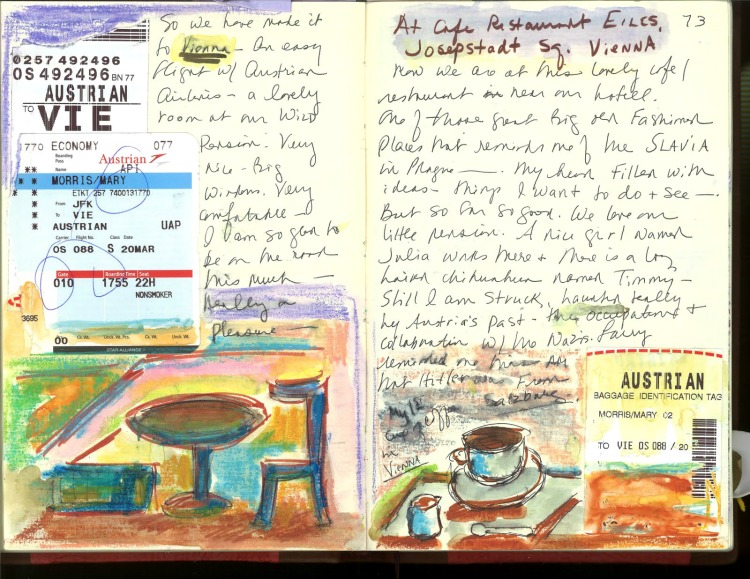 0257 492496
OS 492496 BN 77
AUSTRIAN
TO VIE
1770 ECONOMY 077
Boarding Pass
Austrian
Name API
MORRIS/MARY
ETKT 257 7400131770
From JFK
To VIE
AUSTRIAN UAP
Carrier Flight No. Class Date
OS 088 S 20MAR
Gate Boarding Time Seat
010 1755 22H
NONSMOKER
3695
Ck. Wt. Unck. Wt. Pcs. Ck. Wt. Unck. Wt.
00
STAR ALLIANCE
So we have made it
to Vienna - An easy
flight w/ Austrian
Airlines - a lovely
room at our Wild
Pension. Very
nice - Big
Windows. Very
comfortable -
I am so glad to
be on the road
this much -
Really a
pleasure -
73
At Cafe Restaurant EILES,
Josepstadt Sq. VIENNA
Now we are at this lovely cafe/
restaurant near our hotel.
One of those great big old Fashioned
Places that reminds me of the SLAVIA
in Prague -. My head filled with
ideas - things I want to do + see -.
But so far so good. We love our
little pension. A nice girl named
Julia works there + there is a long
haired chihuahua named Timmy -
Still I am struck, haunted really
by Austria's past - the occupation +
collaboration w/ the Nazis. Larry
reminded me
that Hitler was from
Salzburg.
My 1st
Cup of Coffee
in
VIENNA
AUSTRIAN
BAGGAGE IDENTIFICATION TAG
MORRIS/MARY 02
TO VIE OS 088 / 20